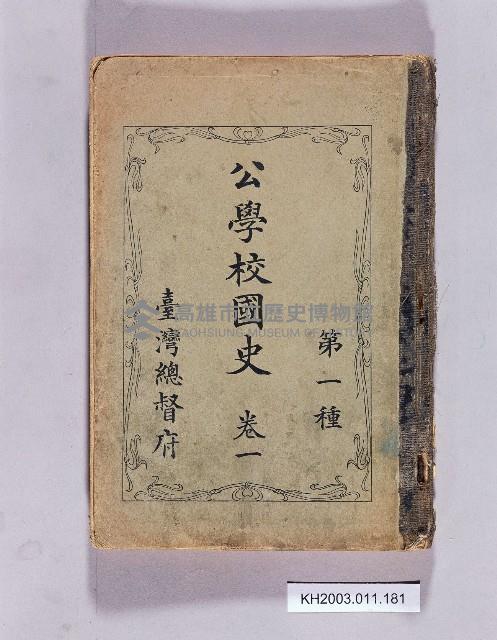 第一種
公學校國史 卷一
臺灣總督府
高雄市立歷史博物館
KAOHSIUNG MUSEUM OF HISTORY
KH2003.011.181